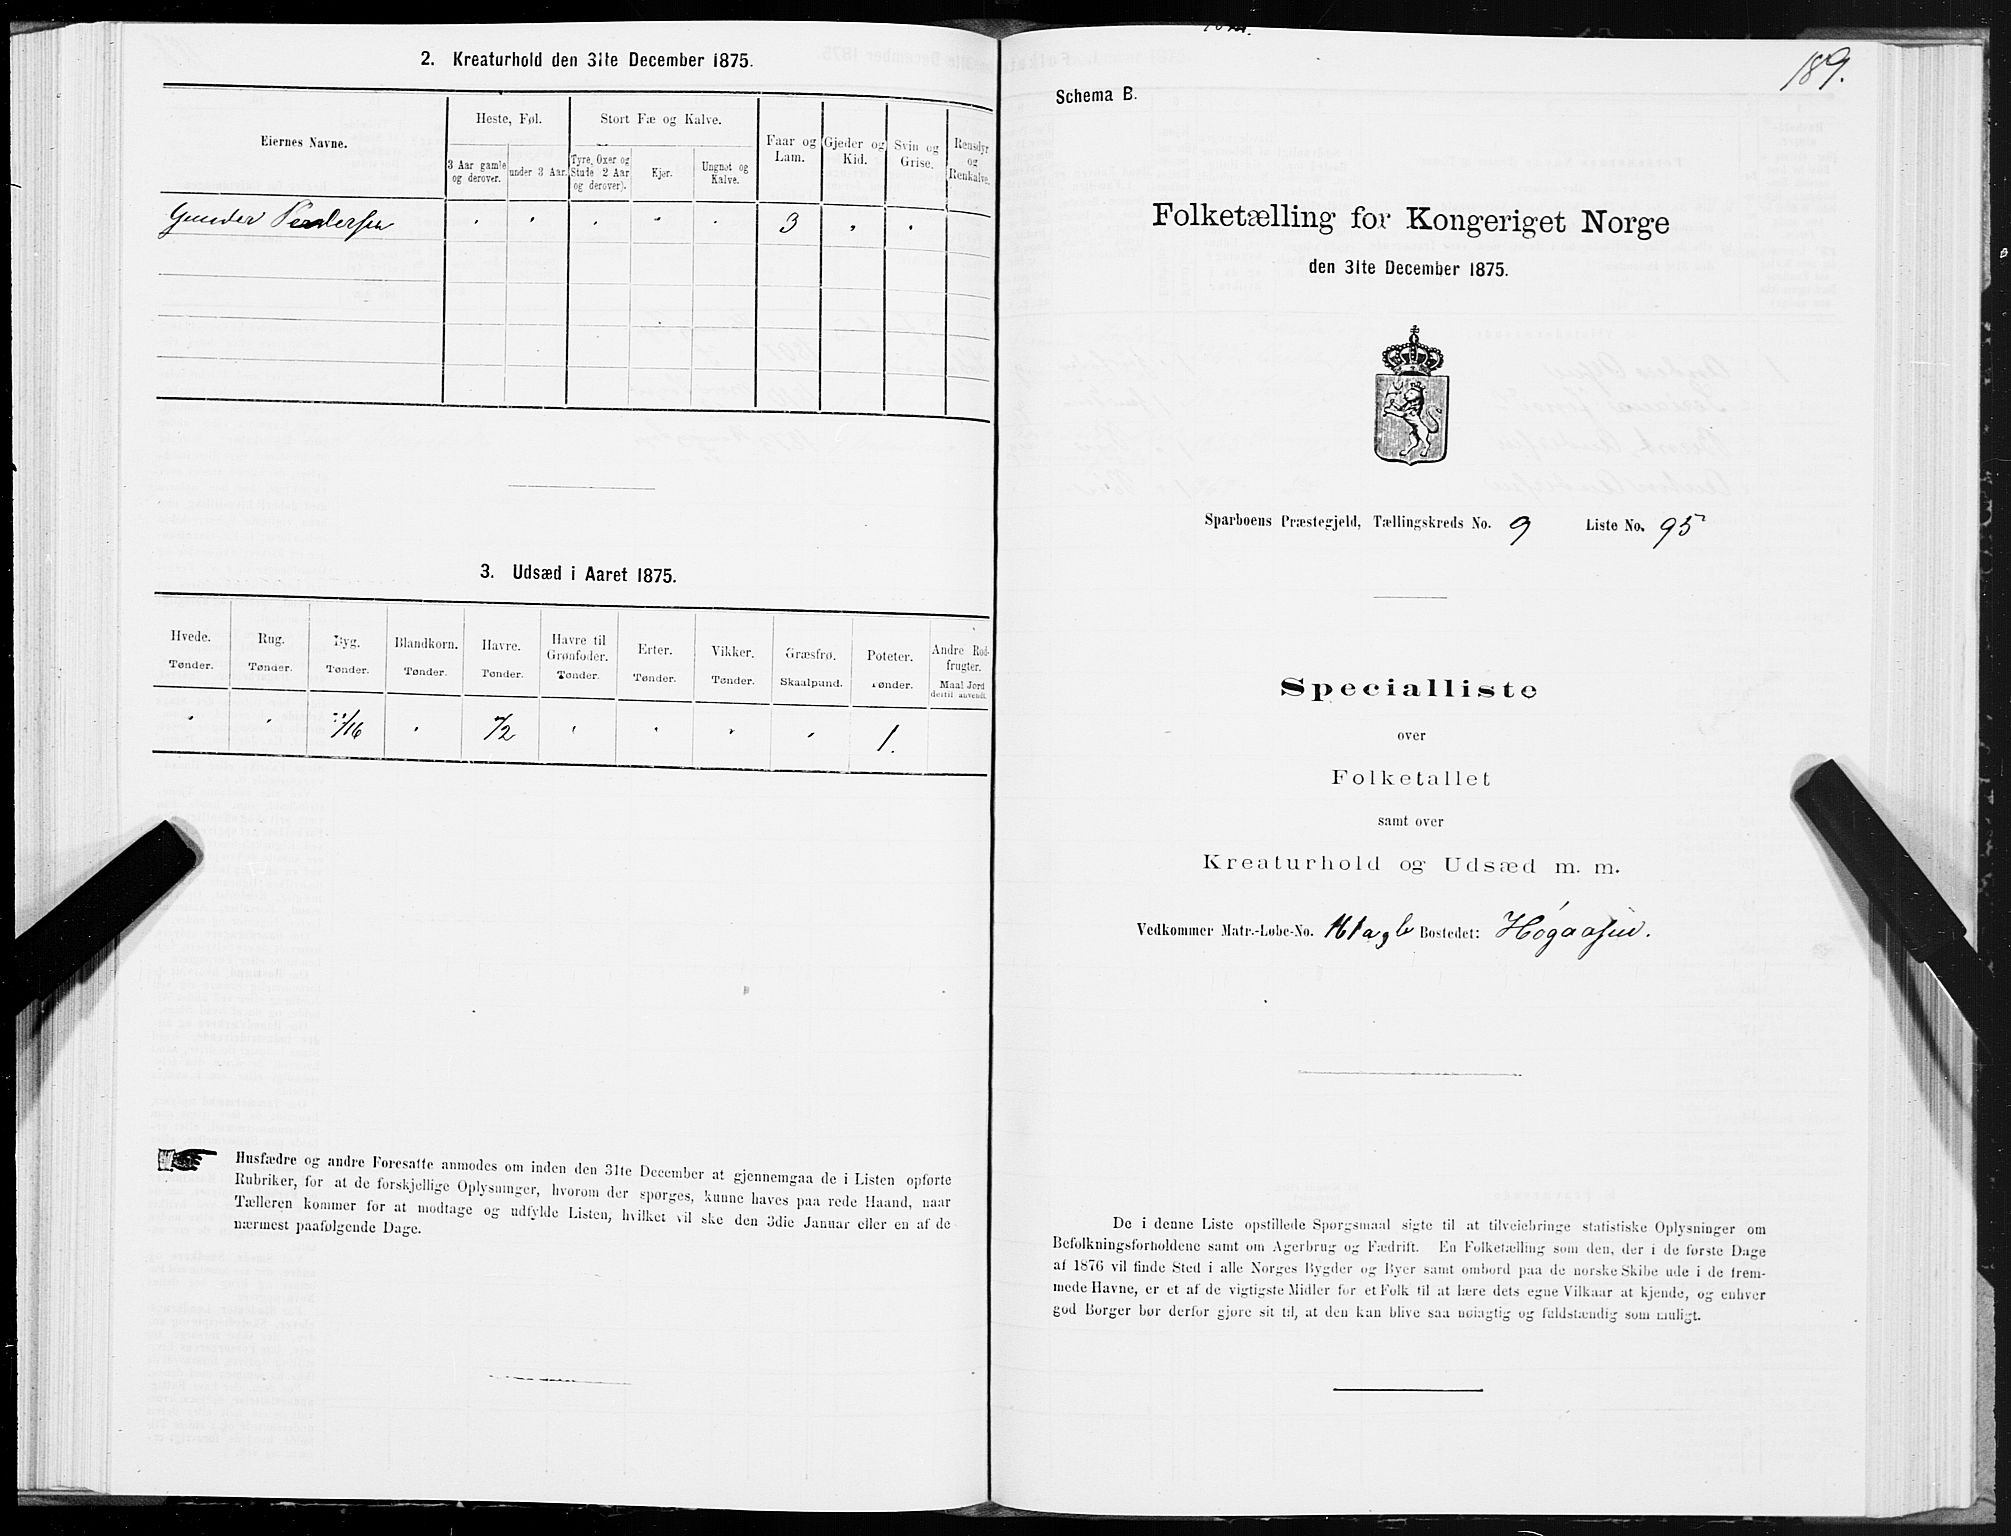 2. Kreaturhold den 31te December 1875.
Eiernes Navne.
Heste, Føl.
Stort Fæ og Kalve.
Faar og Lam.
Gjeder og Kid.
Svin og Grise.
Rensdyr og Renkalve.
3 Aar gamle og derover.
under 3 Aar.
Tyre, Oxer og Stude 2 Aar og derover).
Kjer.
Ungnøt og Kalve.
Gunder Pedersen " " " " " 3 " "
3. Udsæd i Aaret 1875.
Hvede. Rug. Byg. Blandkorn. Havre. Havre til Grønfoder. Erter. Vikker. Græsfrø. Poteter. Andre Rodfrugter.
Tønder. Tønder. Tønder. Tønder. Tønder. Tønder. Tønder. Tønder. Skaalpund. Tønder. Maal Jord dertil anvendt.
" " /16 " 1/2 " " " " 1.
Husfædre og andre Foresatte anmodes om inden den 31te December at gjennemgaa de i Listen opførte
Rubriker, for at de forskjellige Oplysninger, hvorom der spørges, kunne haves paa rede Haand, naar
Tælleren kommer for at modtage og udfylde Listen, hvilket vil ske den 3die Januar eller en af de
nærmest paafølgende Dage.
189.
Schema B.
Folketælling for Kongeriget Norge
den 31te December 1875.
Sparboens Præstegjeld, Tællingskreds No. 9 Liste No. 95
Specialliste
over
Folketallet
samt over
Kreaturhold og Udsæd m. m.
Vedkommer Matr.-Løbe-No. 161a,b Bostedet: Høgaasen.
De i denne Liste opstillede Spørgsmaal sigte til at tilveiebringe statistiske Oplysninger om
Befolkningsforholdene samt om Agerbrug og Fædrift. En Folketælling som den, der i de første Dage
af 1876 vil finde Sted i alle Norges Bygder og Byer samt ombord paa de norske Skibe ude i de frem-
mede Havne, er et af de vigtigste Midler for et Folk til at lære dets egne Vilkaar at kjende, og enhver
god Borger bør derfor gjøre sit til, at den kan blive saa nøiagtig og fuldstændig som muligt.